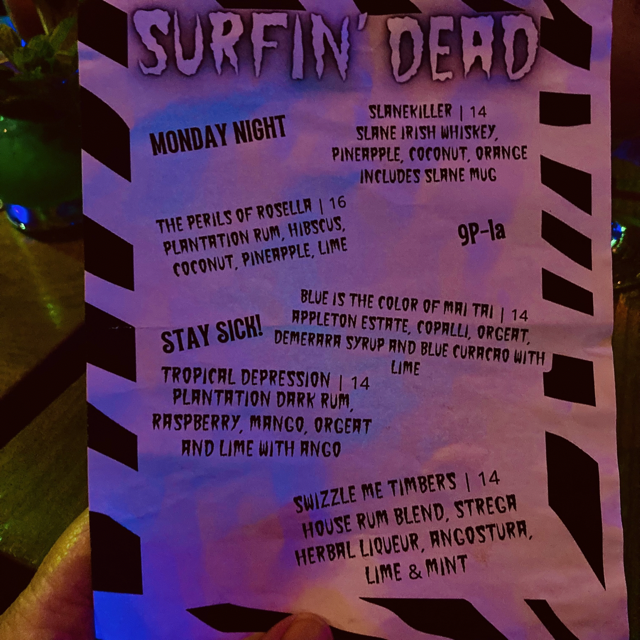 SURFIN' DEAD
MONDAY NIGHT
SLANEKILLER | 14
SLANE IRISH WHISKEY,
PINEAPPLE, COCONUT, ORANGE
INCLUDES SLANE MUG
THE PERILS OF ROSELLA | 16
PLANTATION RUM, HIBSCUS,
COCONUT, PINEAPPLE, LIME
9P-1a
BLUE IS THE COLOR OF MAI TAI | 14
APPLETON ESTATE, COPALLI, ORGEAT,
DEMERARA SYRUP AND BLUE CURACAO WITH
LIME
STAY SICK!
TROPICAL DEPRESSION | 14
PLANTATION DARK RUM,
RASPBERRY, MANGO, ORGEAT
AND LIME WITH ANGO
SWIZZLE ME TIMBERS | 14
HOUSE RUM BLEND, STREGA
HERBAL LIQUEUR, ANGOSTURA,
LIME & MINT